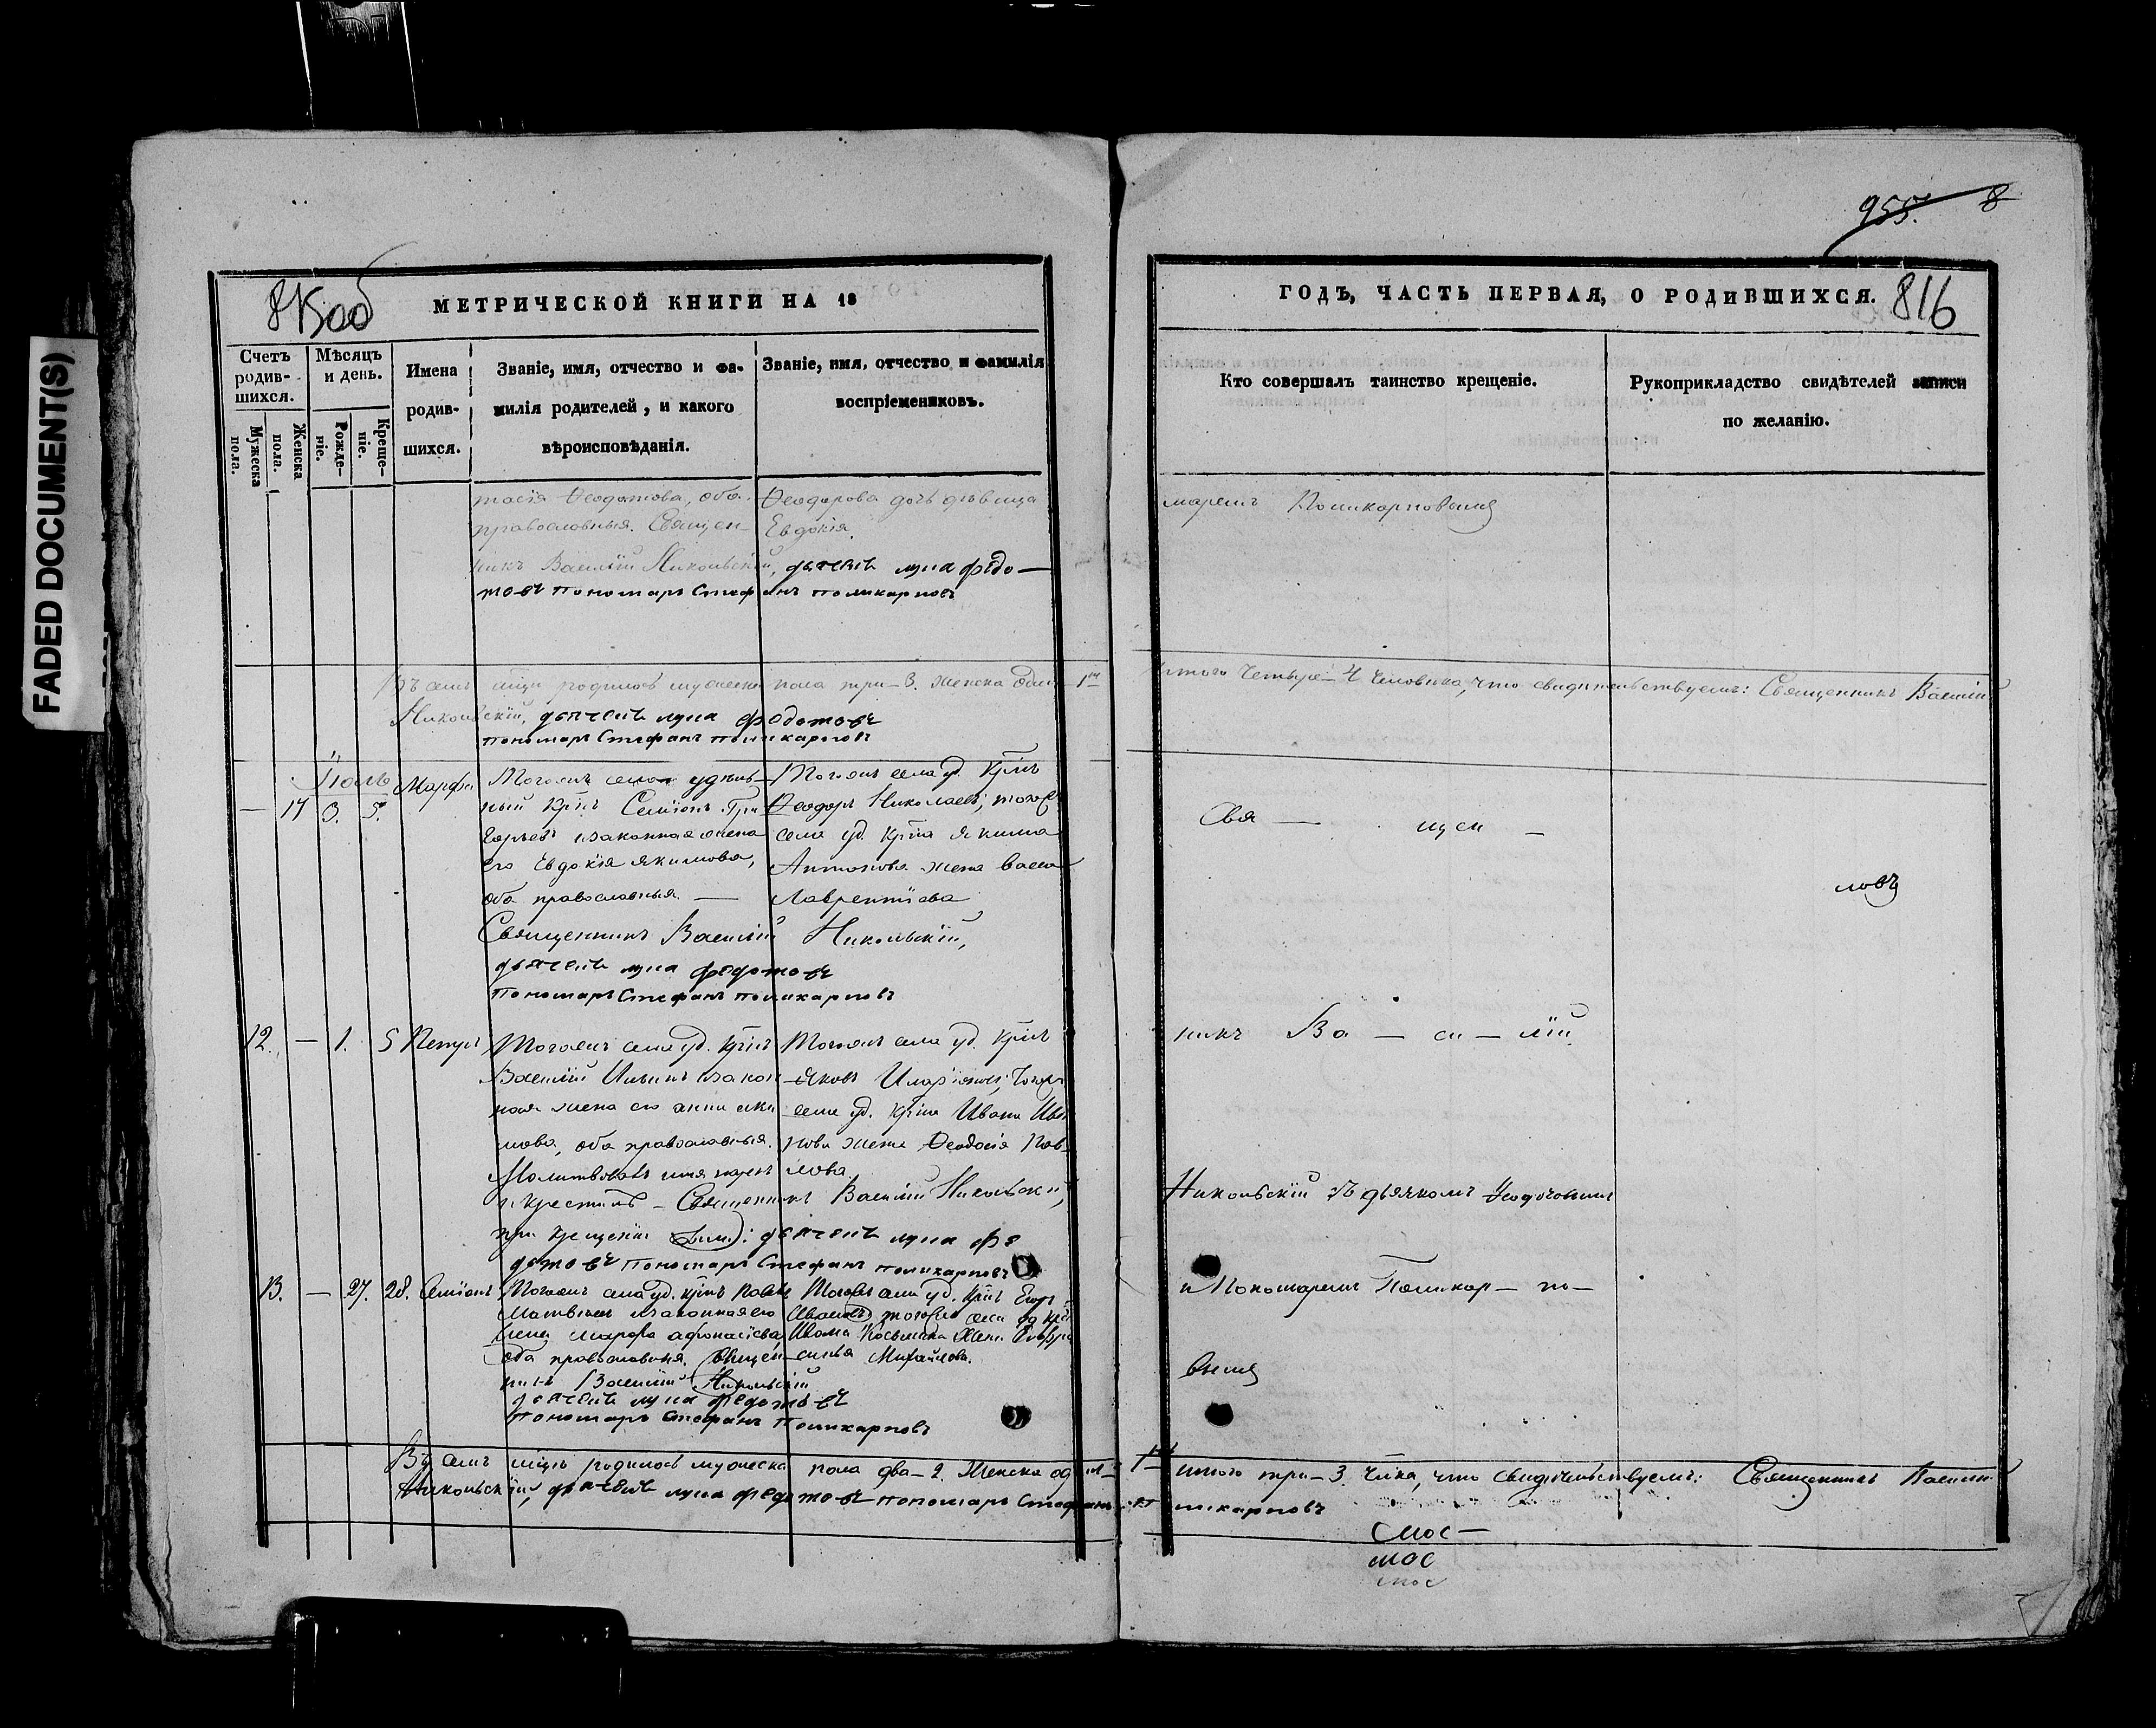 FADED DOCUMENT(S)
955. 8
815об
МЕТРИЧЕСКОЙ КНИГИ НА 18
ГОДЪ, ЧАСТЬ ПЕРВАЯ, О РОДИВШИХСЯ.
816
Счетъ родив-шихся.
Мужеска пола.
Женска пола.
Мѣсяцъ и день.
Рожде-ніе.
Креще-ніе.
Имена родив-шихся.
Званіе, имя, отчество и фа-
милія родителей, и какого
вѣроисповѣданія.
Званіе, имя, отчество и фамилія
воспріемниковъ.
Кто совершалъ таинство крещеніе.
Рукоприкладство свидѣтелей записи
по желанію.
тасія Ѳеодотова, оба
православныя. Священ-
никъ Василій Никольскій, дьячекъ лука федо-
товъ пономарь Стефанъ поликарповъ
Ѳеодорова дочь дѣвица
Евдокія.
маремъ Поликарповымъ
Въ семъ мцѣ родилось мужеска пола три - 3. женска одна - 1
итого четыре - 4 человѣка, что свидѣтельствуемъ: Священникъ Василій
Никольскій, дьячекъ лука федотовъ
пономарь Стефанъ поликарповъ
Іюль
— 14 3. 5. Марфа
Тогожъ села удѣль-
ный крнъ Семіонъ Гри
горьевъ изаконная жена
его Евдокія Якимова,
оба православныя. —
Тогожъ села уд. крнъ
Ѳеодоръ Николаевъ, тогож
села уд. крна Якима
Антонова жена Васса
Лаврентіева
Священникъ Василій Никольскій,
дьячекъ лука федотовъ
пономарь Стефанъ поликарповъ
Свя — щен —
ловъ
12. — 1. 5 Петръ
Тогожъ села уд. крнъ
Василій Ильинъ изакон
ная жена его анна
мова, оба православныя.
Молитвовалъ имя нарекъ
и крестилъ - Священникъ Василій Никольскій,
при крещеніи дьячекъ лука фе
дотовъ пономарь Стефанъ поликарповъ
Тогожъ села уд. крнъ
Яковъ Иларіоновъ, тогож
села уд. крна Ивана Ива
нова жена Ѳеодосія Пав
лова.
никъ Ва — си — лій
Никольскій съ дьячкомъ Ѳедотовымъ
13. — 27. 28. Семіонъ
Тогожъ села уд. крнъ Павелъ
Матвѣевъ изаконная его
жена марфа афонасіева,
оба православныя. Священ
никъ Василій Никольскій
дьячекъ лука федотовъ
пономарь Стефанъ Поликарповъ
Тогожъ села уд. крнъ Егоръ
Ивановъ, тогожъ села уд крна
Ивана Косьмина жена Евфро
синья Михайлова.
и Пономаремъ Поликар — по —
вымъ
Въ семъ мцѣ родилось мужеска пола два - 2. Женска одна - 1
итого три - 3 члка, что свидѣтельствуемъ: Священникъ Василій
Никольскій, дьячекъ лука федотовъ пономарь Стефанъ поликарповъ